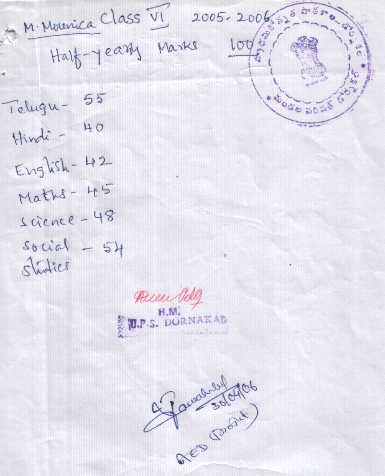 M. Mounica Class VI 2005-2006
Half-yearly Marks 100
Telugu - 55
Hindi - 40
English - 42
Maths - 45
Science - 48
Social - 54
Studies
H.M.
U.P.S. DORNAKAB
30/04/06